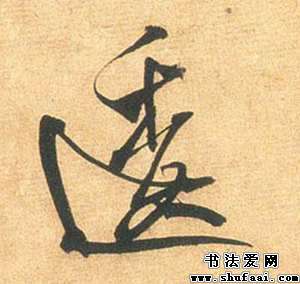 逶
书法爱网
www.shufaai.com